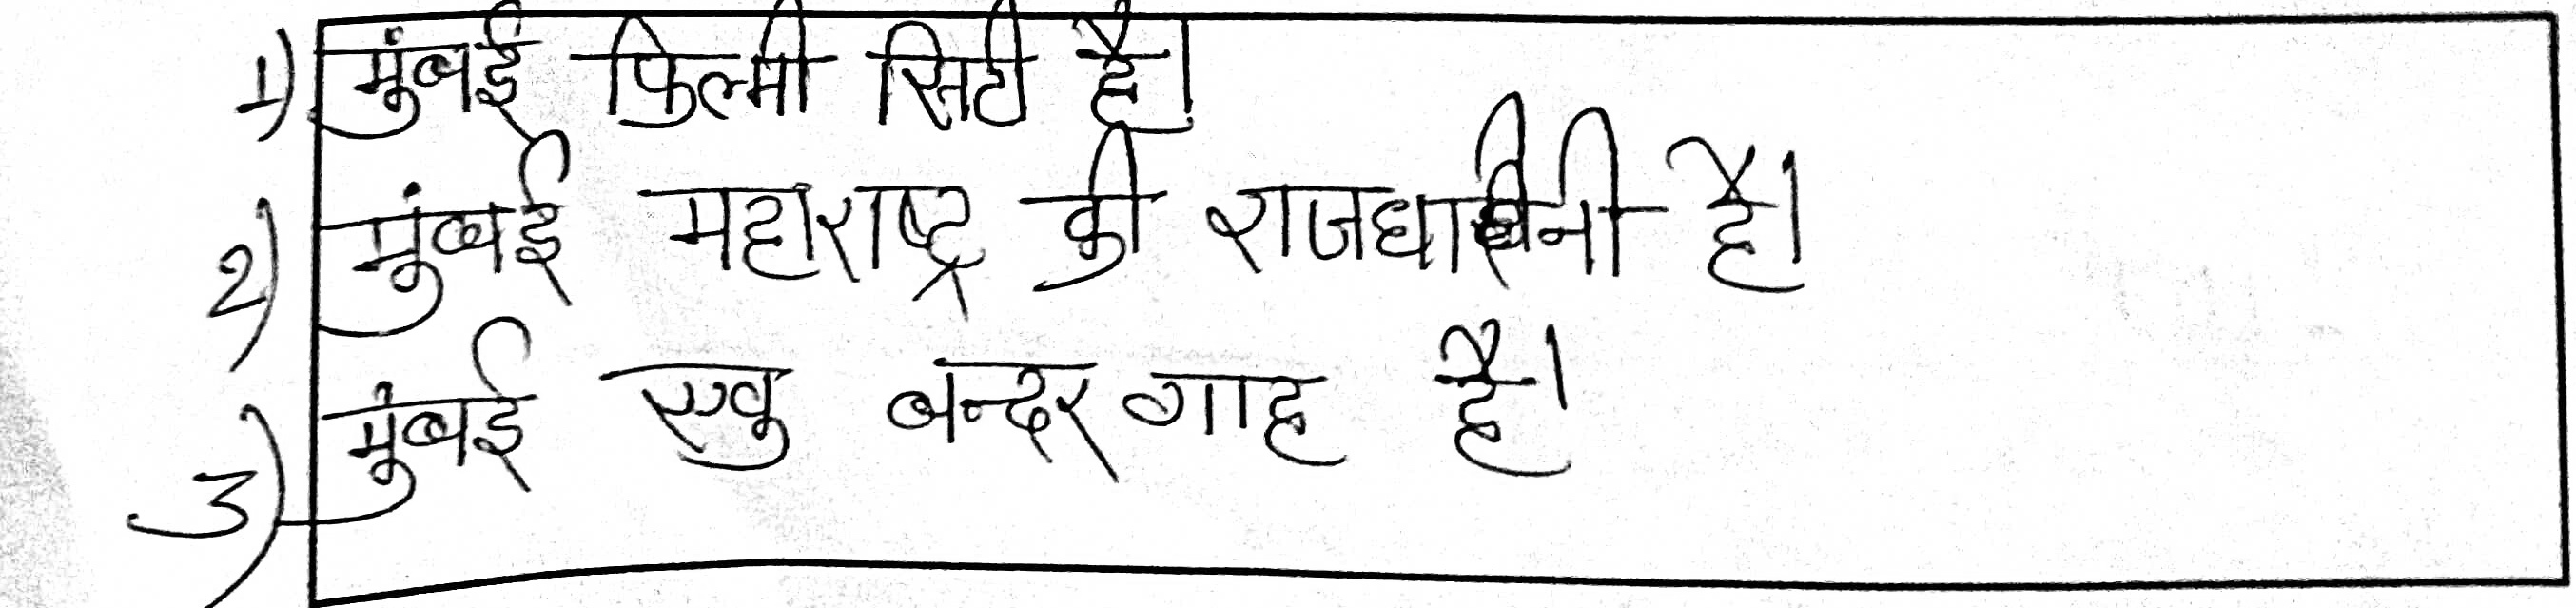 1) मुंबई फिल्मी सिटी है।
2) मुंबई महाराष्ट्र की राजधानी है।
3) मुंबई एक बन्दरगाह है।